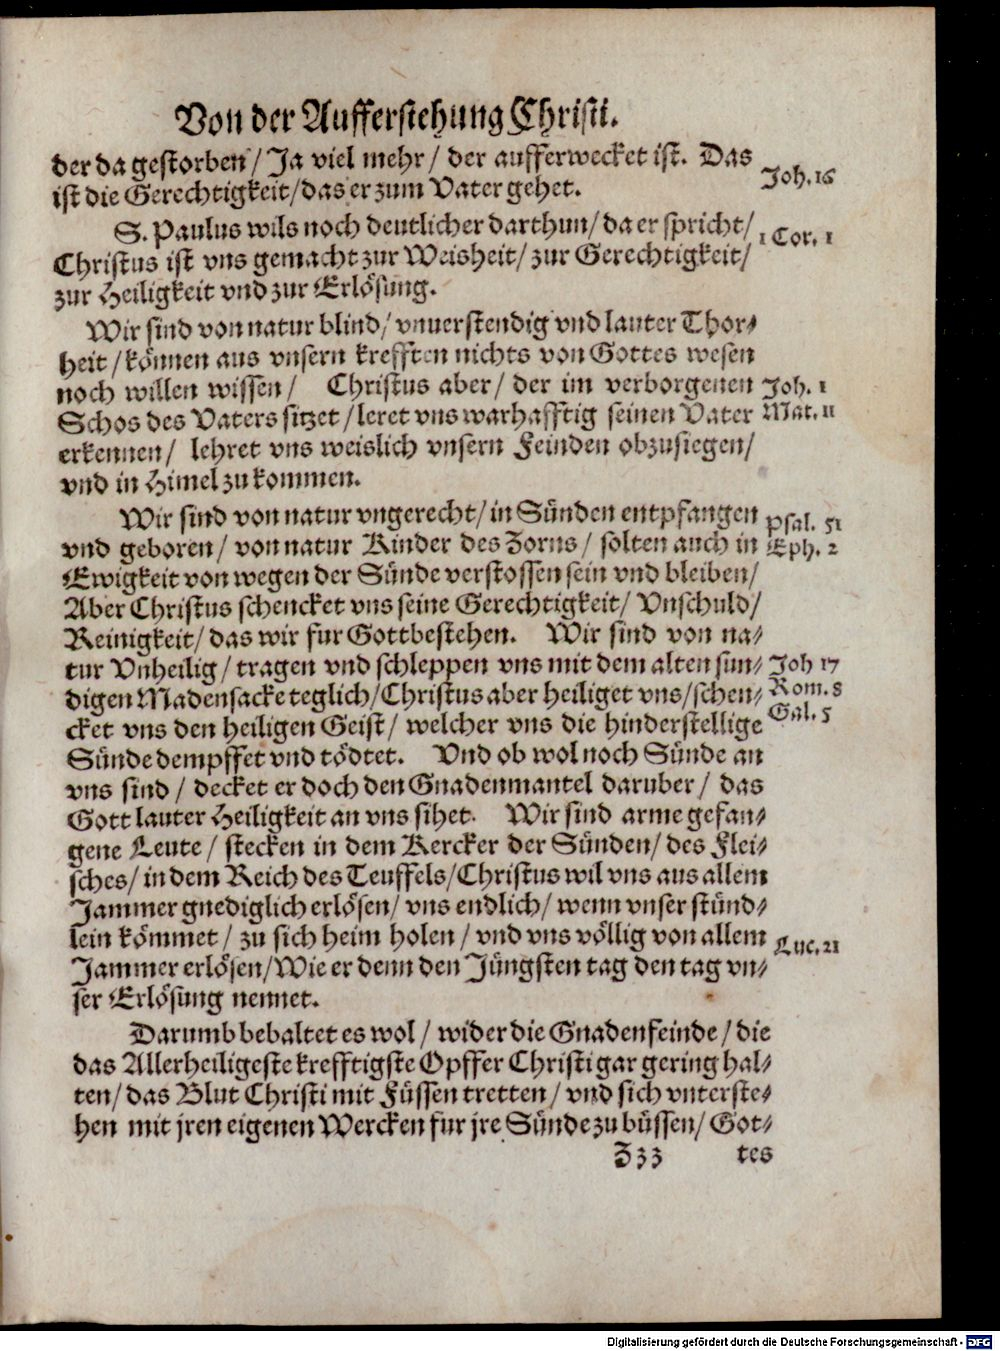 Von der Aufferstehung Christi.
der da gestorben / Ja viel mehr / der aufferwecket ist. Das
ist die Gerechtigkeit / das er zum Vater gehet.
Joh. 16
S. Paulus wils noch deutlicher darthun / da er spricht /
1 Cor. 1
Christus ist vns gemacht zur Weisheit / zur Gerechtigkeit /
zur Heiligkeit vnd zur Erlösung.
Wir sind von natur blind / vnuerstendig vnd lauter Thor⸗
heit / können aus vnsern krefften nichts von Gottes wesen
noch willen wissen / Christus aber / der im verborgenen
Joh. 1
Schos des Vaters sitzet / leret vns warhafftig seinen Vater
Mat. 11
erkennen / lehret vns weislich vnsern Feinden obzusiegen /
vnd in Himel zu kommen.
Wir sind von natur vngerecht / in Sünden entpfangen
Psal. 51
vnd geboren / von natur Kinder des Zorns / solten auch in
Eph. 2
Ewigkeit von wegen der Sünde verstossen sein vnd bleiben /
Aber Christus schencket vns seine Gerechtigkeit / Vnschuld /
Reinigkeit / das wir fur Gott bestehen. Wir sind von na⸗
tur Vnheilig / tragen vnd schleppen vns mit dem alten sun⸗
Joh 17
digen Madensacke teglich / Christus aber heiliget vns / schen⸗
Rom. 8
cket vns den heiligen Geist / welcher vns die hinderstellige
Gal. 5
Sünde dempffet vnd tödtet. Vnd ob wol noch Sünde an
vns sind / decket er doch den Gnadenmantel daruber / das
Gott lauter Heiligkeit an vns sihet. Wir sind arme gefan⸗
gene Leute / stecken in dem Kercker der Sünden / des Flei⸗
sches / in dem Reich des Teuffels / Christus wil vns aus allem
Jammer gnediglich erlösen / vns endlich / wenn vnser stünd⸗
lein kömmet / zu sich heim holen / vnd vns völlig von allem
Luc. 21
Jammer erlösen / Wie er denn den Jüngsten tag den tag vn⸗
ser Erlösung nennet.
Darumb behaltet es wol / wider die Gnadenfeinde / die
das Allerheiligeste krefftigste Opffer Christi gar gering hal⸗
ten / das Blut Christi mit Füssen tretten / vnd sich vnterste⸗
hen mit jren eigenen Wercken fur jre Sünde zu büssen / Got⸗
Zzz tes
Digitalisierung gefördert durch die Deutsche Forschungsgemeinschaft - DFG